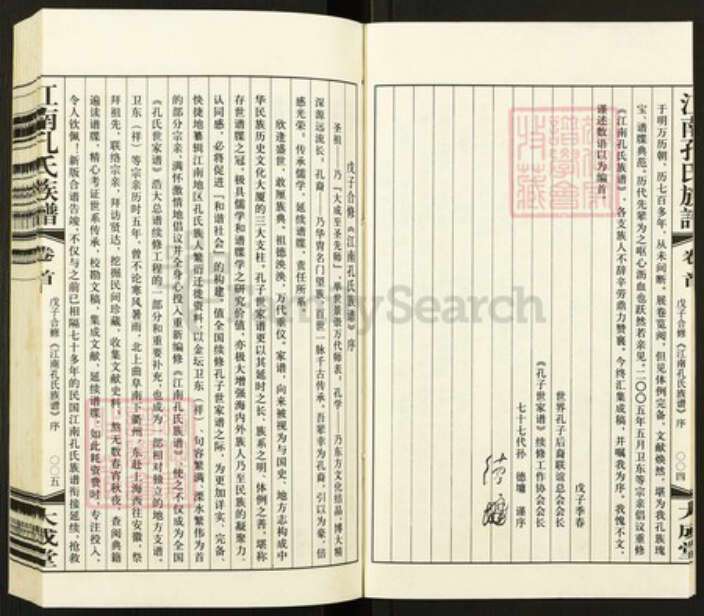 江南孔氏族譜
卷首
戊子合修《江南孔氏族谱》序
〇〇四
大成堂
于明万历朝，历七百多年，从未间断。展卷览阅，但见体例完备，文献焕然，堪为我孔族瑰
宝、谱牒典范，历代先辈为之呕心沥血也跃然若亲见。二〇〇五年五月卫东等宗亲倡议重修
《江南孔氏族谱》，各支族人不辞辛劳鼎力赞襄，今终汇集成稿，并嘱我为序。我愧不文，
谨述数语以为编首。
戊子季春
世界孔子后裔联谊总会会长
《孔子世家谱》续修工作协会会长
七十七代孙 德墉 谨序
戊子合修《江南孔氏族谱》序
圣祖——乃「大成至圣先师」，举世景崇万代师表。孔学——乃东方文化结晶，博大精
深源远流长。孔裔——乃华胄名门望族，百世一脉千古传承。吾辈幸为孔裔，引以为豪，倍
感光荣。传承儒学，延续谱牒，责任所系。
欣逢盛世，敢厘族典，祖德泱泱，万代垂仪。家谱，向来被视为与国史、地方志构成中
华民族历史文化大厦的三大支柱。孔子世家谱更以其延时之长、族系之明、体例之善，堪称
存世谱牒之冠，极具儒学和谱牒学之研究价值，亦极大增强海内外族人乃至民族的凝聚力、
认同感，必将促进「和谐社会」的构建。值全国续修孔子世家谱之际，为更加详实、完备、
快捷地纂辑江南地区孔氏族人繁衍迁徙资料，以金坛卫东（祥）、句容繁满、溧水繁伟为首
的部分宗亲，满怀激情地倡议并全身心投入重新编修《江南孔氏族谱》，使之不仅成为全国
《孔氏世家谱》浩大总谱续修工程的一部分和重要补充，也成为一部相对独立的地方支谱。
卫东（祥）等宗亲历时五年，曾不论寒风暑雨，北上曲阜南下衢州，东赴上海西往安徽，祭
拜祖先，联络宗亲，拜访贤达，挖掘民间珍藏，收集文献史料，熬无数春宵秋夜，查阅典籍
遍读谱牒，精心考证世系传承，校勘文稿，集成文献，延续谱牒。如此耗资费时，专注投入，
令人钦佩！新版合谱告竣，不仅与之前已相隔七十多年的民国江南孔氏族谱衔接延续，抢救
江南孔氏族譜
卷首
戊子合修《江南孔氏族谱》序
〇〇五
大成堂
FamilySearch